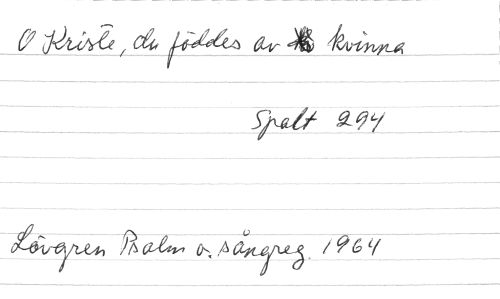 O Kriste, du föddes av kvinna
Spalt 294
Lövgren Psalm o. sångreg. 1964